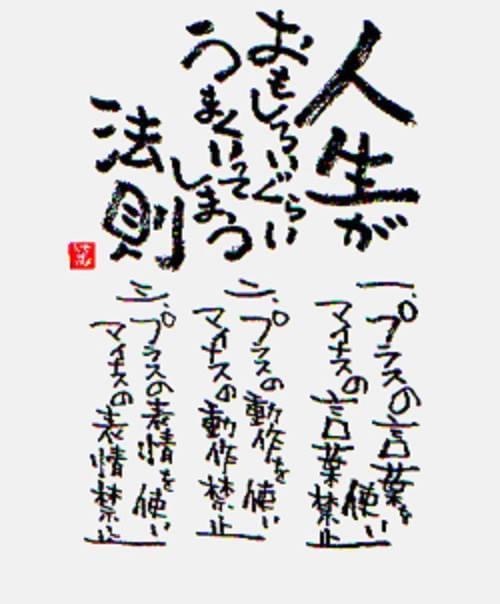 人生が
おもしろいぐらい
うまくいって
しまう
法則
一、プラスの言葉を使い
マイナスの言葉禁止
二、プラスの動作を使い
マイナスの動作禁止
三、プラスの表情を使い
マイナスの表情禁止